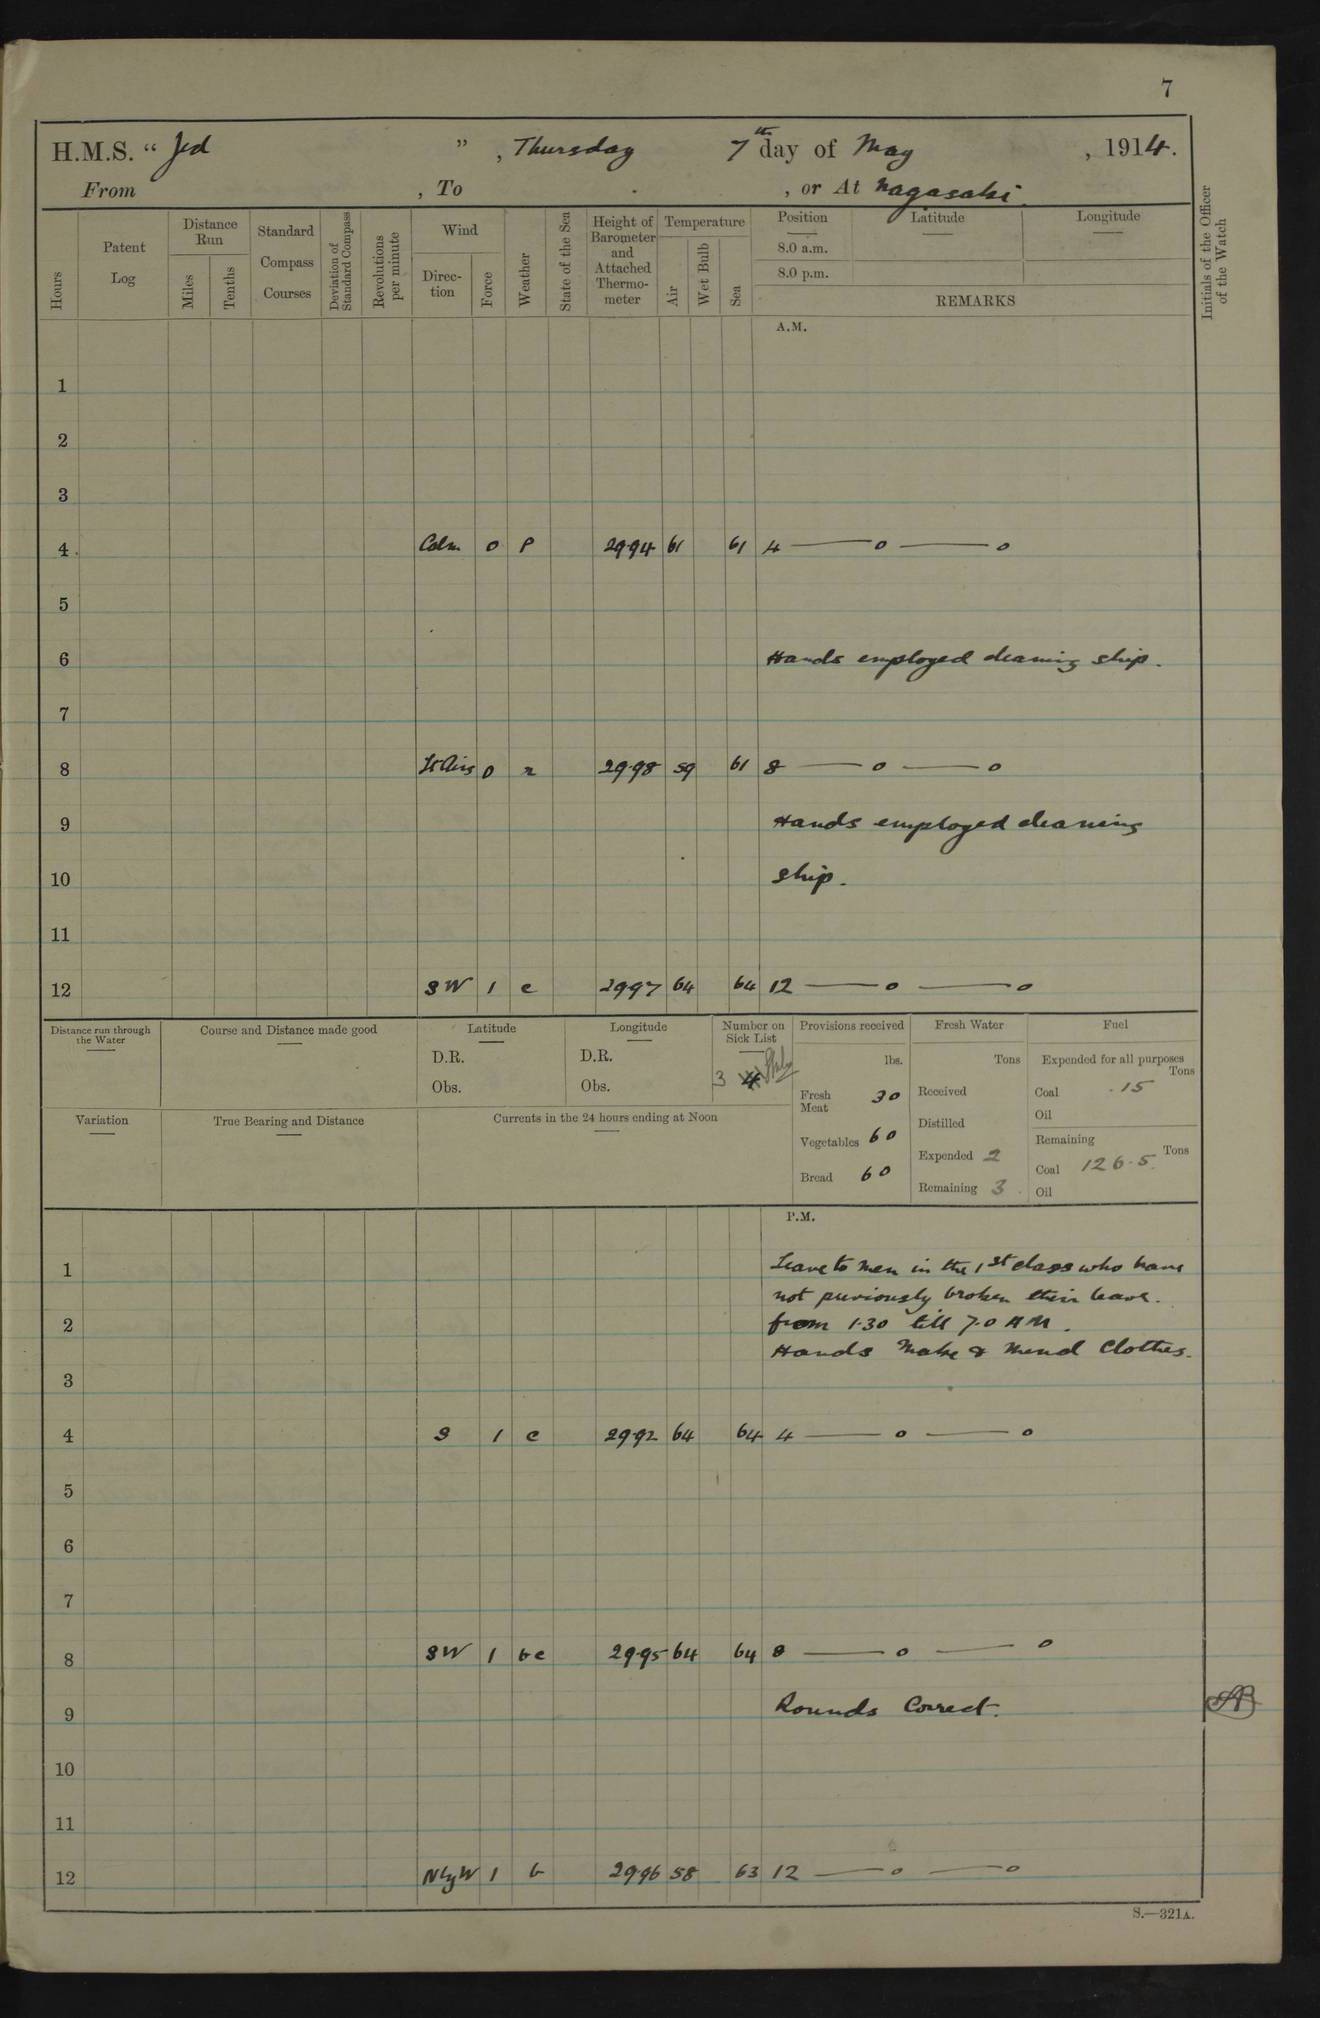 7
H.M.S. " Jed ", Thursday 7th day of May, 1914.
From , To , or At Nagasaki.
Hours
Patent Log
Distance Run
Miles
Tenths
Standard Compass Courses
Deviation of Standard Compass
Revolutions per minute
Wind
Direction
Force
Weather
State of the Sea
Height of Barometer and Attached Thermometer
Temperature
Air
Wet Bulb
Sea
Position Latitude Longitude
8.0 a.m.
8.0 p.m.
REMARKS
Initials of the Officer of the Watch
A.M.
1
2
3
4 Calm 0 P 29.94 61 61 4 — o — o
5
6 Hands employed cleaning ship.
7
8 Lt Airs 0 r 29.98 59 61 8 — o — o
9 Hands employed cleaning
10 ship.
11
12 SW 1 c 29.97 64 64 12 — o — o
Distance run through the Water
Course and Distance made good
Latitude
D.R.
Obs.
Longitude
D.R.
Obs.
Number on Sick List
3 4
Provisions received
lbs.
Fresh Meat 30
Vegetables 60
Bread 60
Fresh Water
Tons
Received
Distilled
Expended 2
Remaining 3
Fuel
Expended for all purposes
Tons
Coal .15
Oil
Remaining
Tons
Coal 126.5
Oil
Variation
True Bearing and Distance
Currents in the 24 hours ending at Noon
P.M.
1 Leave to men in the 1st class who have
not previously broken their leave.
2 from 1.30 till 7.0 AM.
Hands Make & Mend Clothes.
3
4 S 1 c 29.92 64 64 4 — o — o
5
6
7
8 SW 1 bc 29.95 64 64 8 — o — o
9 Rounds Correct. AB
10
11
12 NbyW 1 b 29.96 58 63 12 — o — o
S.—321A.